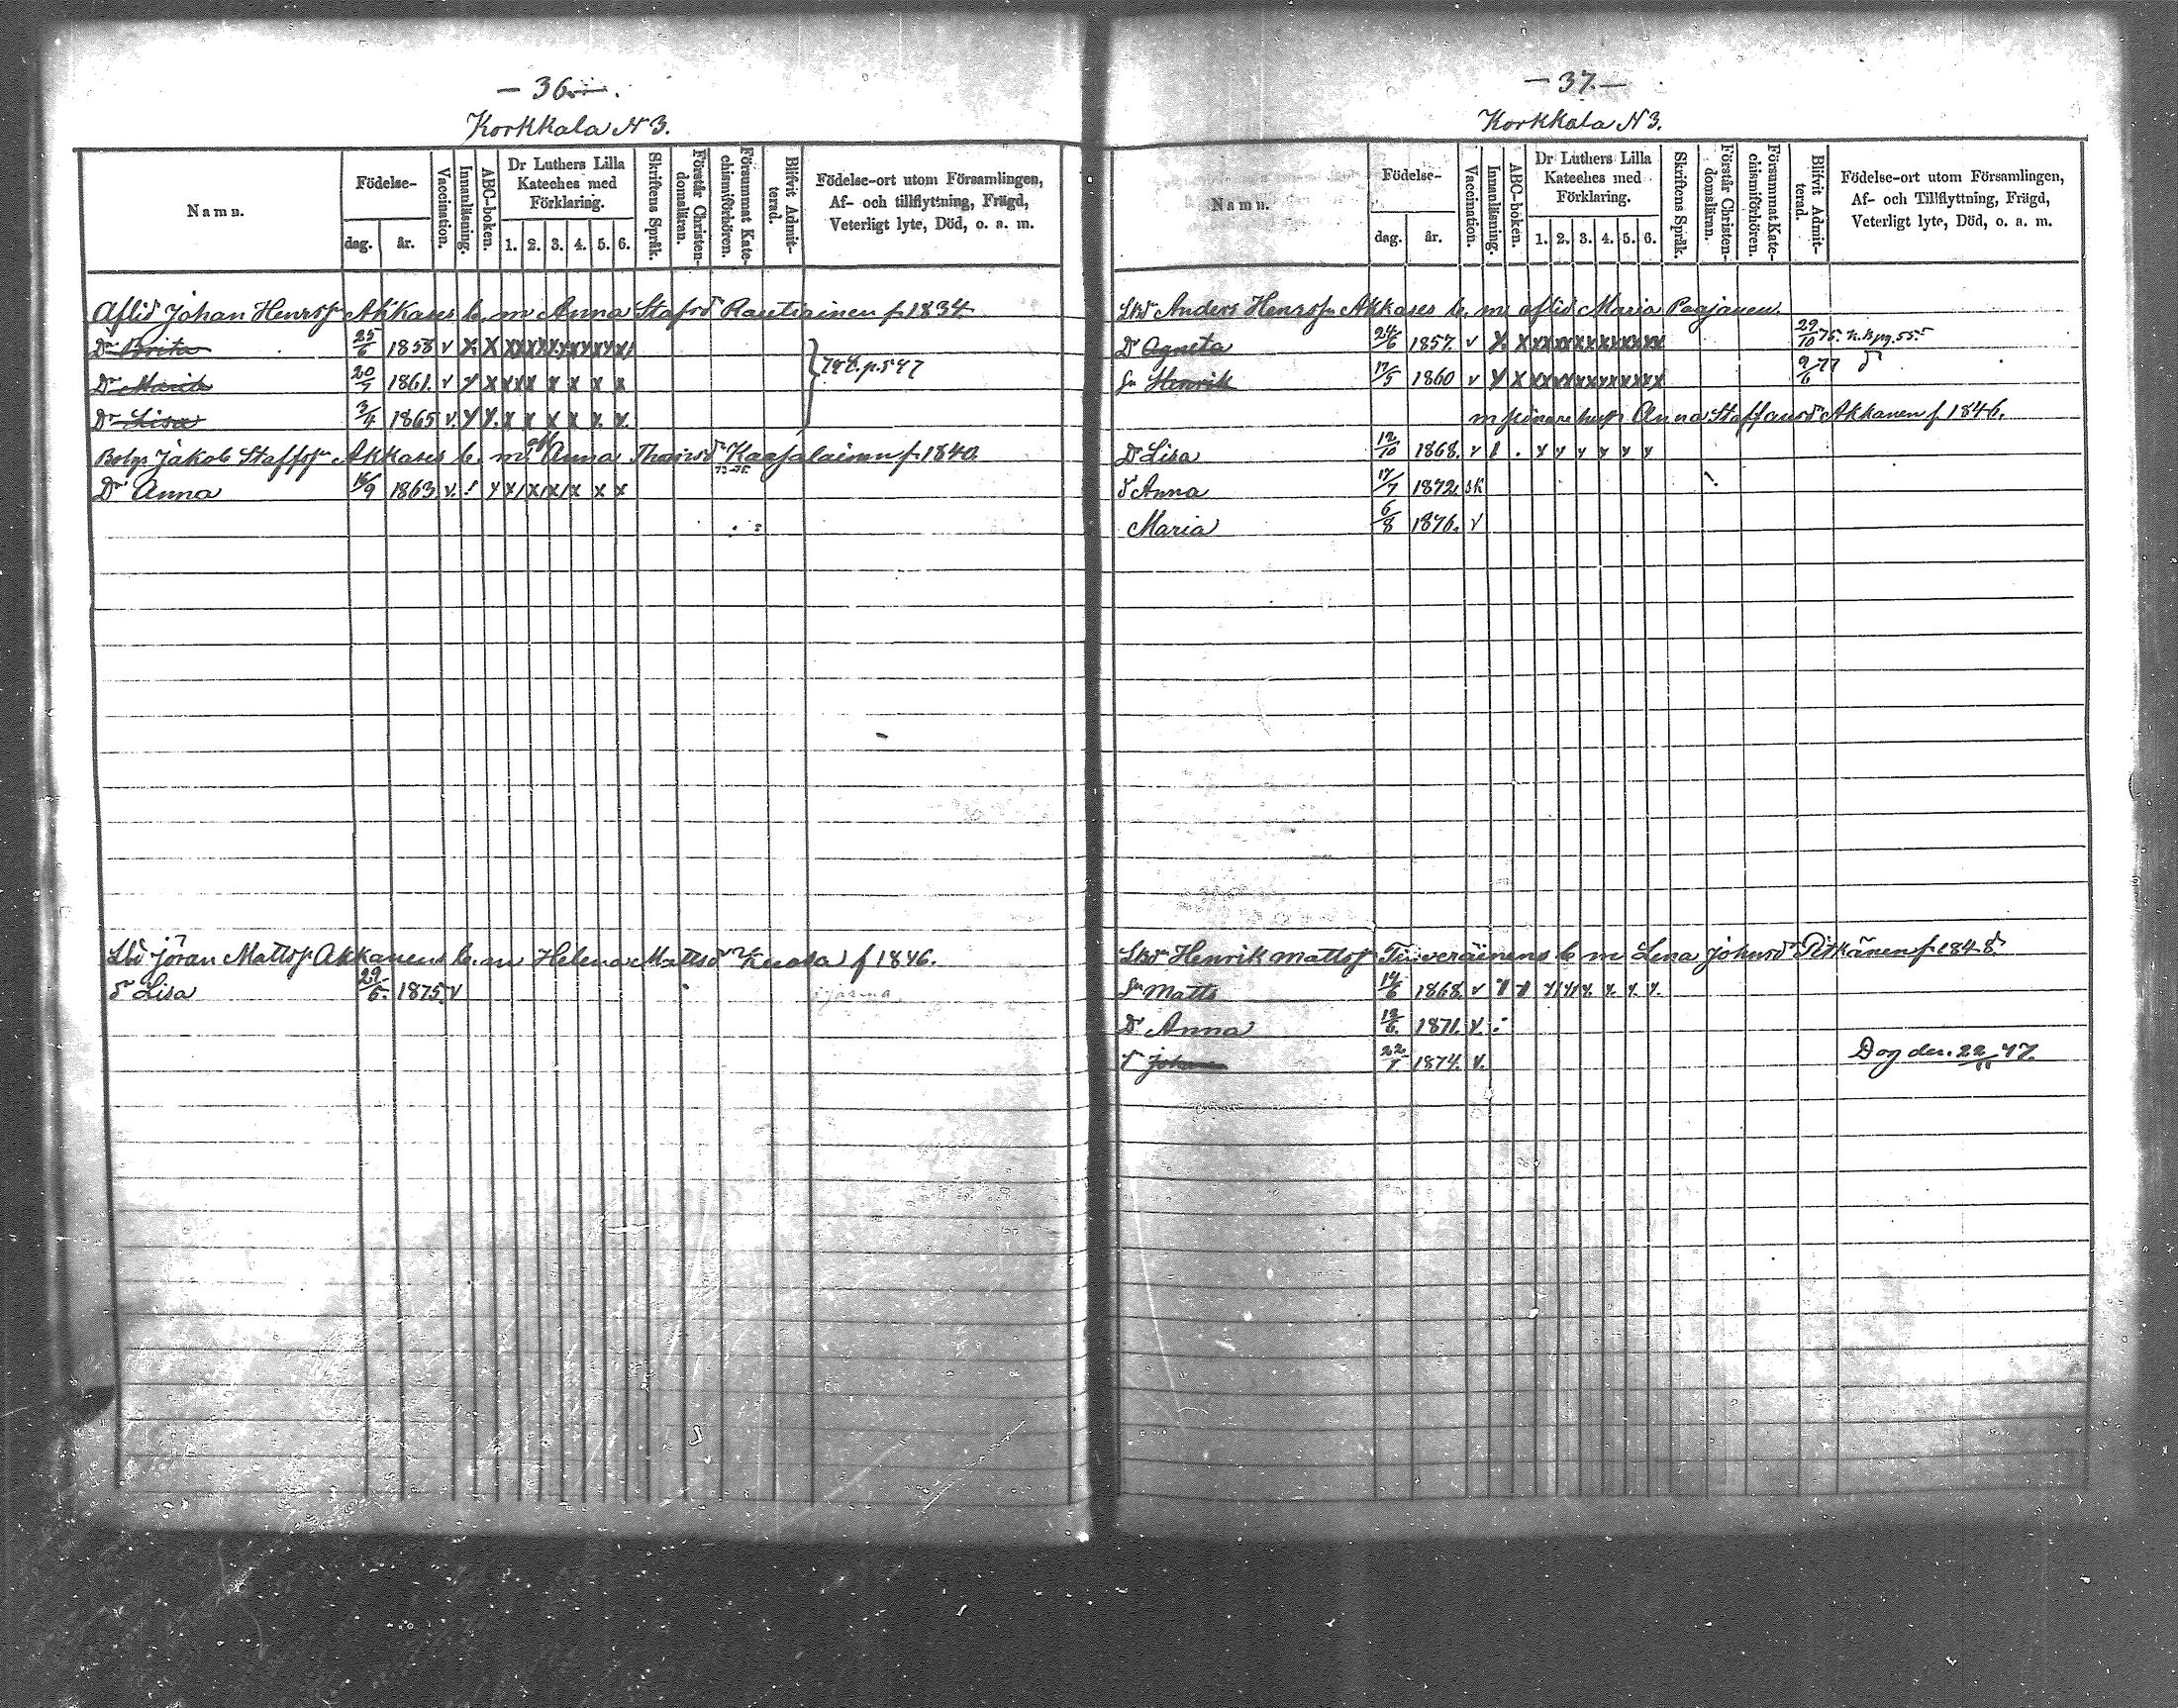 — 36. —
Korkkala N 3.
Namn.
Födelse-
dag.
år.
Vaccination.
Innanläsning.
ABC-boken.
Dr Luthers Lilla
Kateches med
Förklaring.
1. 2. 3. 4. 5. 6.
Skriftens Språk.
Förstår Christen-
domsläran.
Försummat Kate-
chismiförhören.
Blifvit Admit-
terad.
Födelse-ort utom Församlingen,
Af- och tillflyttning, Frägd,
Veterligt lyte, Död, o. a. m.
Aflid Johan Henrsp Akkases b. m Anna Stafsd Rautiainen f. 1834
Dr Brita 25/6 1858 v x x x x x x x x x x x x x
Dr Maria 20/7 1861. v x x x x x x x x x
p. 547
Dr Lisa 3/4 1865 v. x x. x x x x x. x.
Jakob Staffsp Akkases b. m. Anna Thomsd f. 1840.
73-75
Dr Anna 16/9 1863 v. ! x x x x x x x
Sbr Jöran Mattsp. Akkanens b. m Helena Mattsdr Kuosa f 1846.
dr Lisa 29/5. 1875. v
— 37. —
Korkkala N 3.
Namn.
Födelse-
dag.
år.
Vaccination.
Innanläsning.
ABC-boken.
Dr Luthers Lilla
Kateches med
Förklaring.
1. 2. 3. 4. 5. 6.
Skriftens Språk.
Förstår Christen-
domsläran.
Försummat Kate-
chismiförhören.
Blifvit Admit-
terad.
Födelse-ort utom Församlingen,
Af- och Tillflyttning, Frägd,
Veterligt lyte, Död, o. a. m.
Anders Henrsp. Akkases b. m. aflid Maria Paajanen.
Dr Agneta 24/6 1857. v x. x x x x x x x x x x x x x 29/10 75. pg. 55.
Sn Henrik 17/5 1860 v x x x x x x x x x x x x x x 9/6 77 dr
m senare hust Anna Staffansdr Akkanen f 1846.
Dr Lisa 12/10 1868. v . x x x x x x
dr Anna 17/7 1872. sk
Maria 6/8 1876. v
Henrik Mattsp. Tiiveräinens b m Lena Johnsdr Pitkänen f. 1848.
Sn Matts 14/6 1868. v x x x x x x. x. x.
Dr Anna 12/6. 1871. v. :
Sn Johan 22/1 1874. v. Dog den 22/11 77.